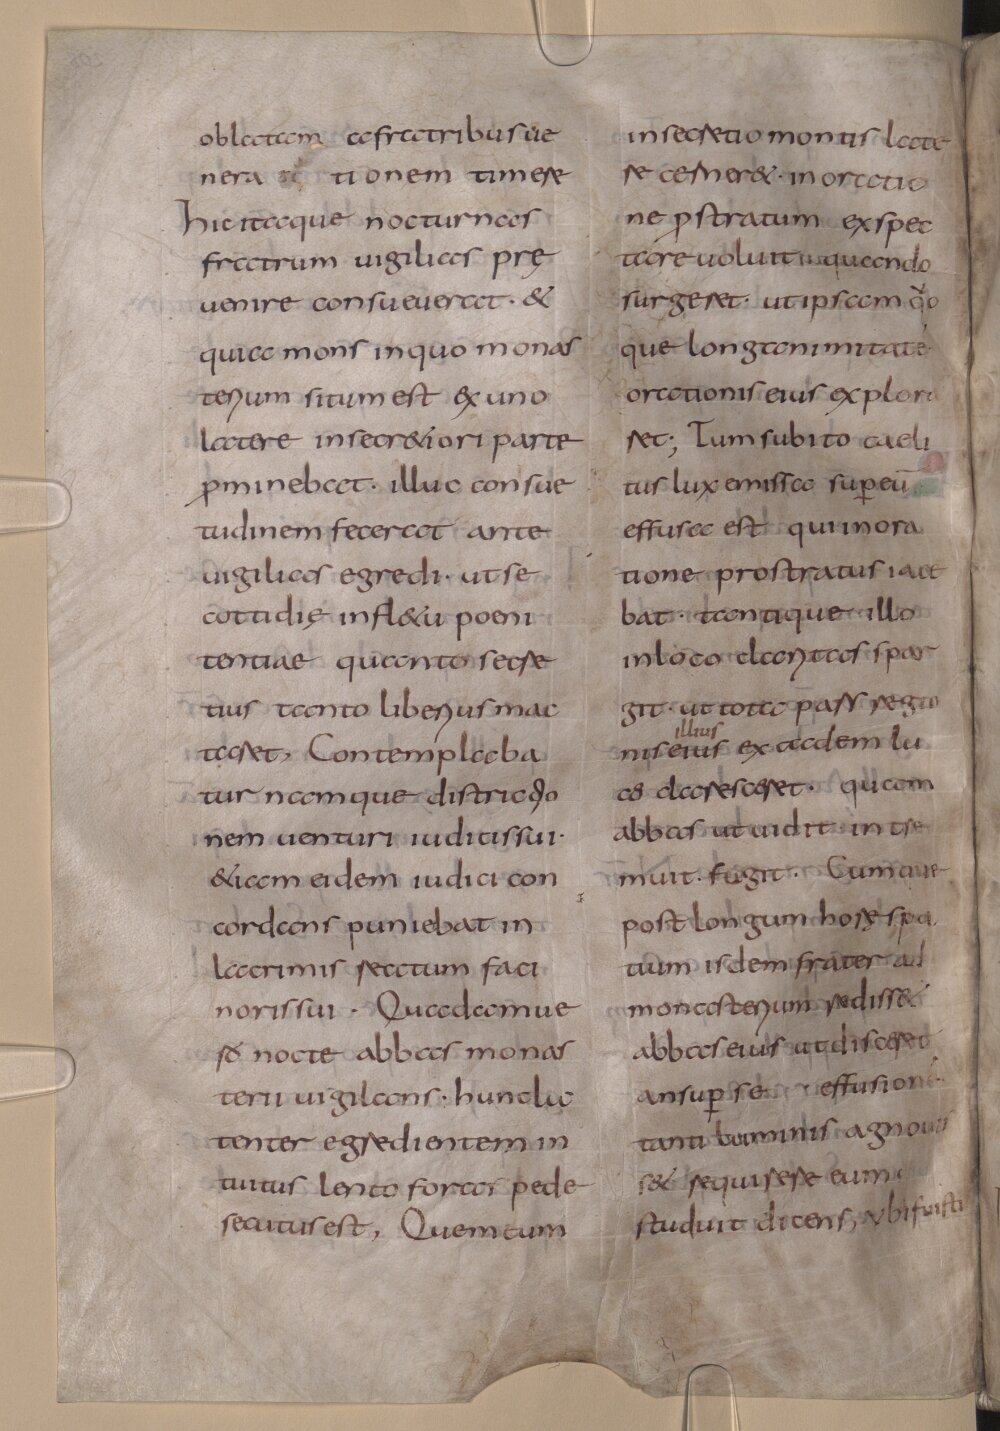 oblatam a fratribus ue
nera ti onem timere
hic itaque nocturnas
fratrum uigilias prę
uenire consueuerat · &
quia mons in quo monas
terium situm est ex uno
latere in secr&iori parte
p̱minebat · illuc consue
tudinem fecerat ante
uigilias egredi · ut se
cottidię in fl&u poeni
tentiae quanto secre
tius tanto liberius mac
taret, Contemplaba
tur namque districtio
nem uenturi iudicis sui ·
&iam eidem iudici con
cordans puniebat in
lacrimis reatum faci
noris sui · Quadam ue
ro nocte abbas monas
terii uigilans · hunc la
tenter egredientem in
tuitus lento foras pede
secutus est, Quem cum
in secreto montis late
re cerner& · in oratio
ne p̱stratum exspec
tare uoluit quando
surgeret · ut ipsam quo
que longanimitate
orationis eius explora
ret; Tum subito caeli
tus lux emissa sup̱ eū
effusa est qui in ora
tione prostratus iace
bat · tantique illo
in loco claritas spar
git · ut tota pars regio
nis eius illius ex eadem lu
ce claresceret · quam
abbas ut uidit · intre
muit · fugit · Cumque
post longum horę spa
tium isdem frater ad
monasterium rediss&
abbas eius ut disceret
an sup̱ se effusione
tanti luminis agnouis
s& requirere eum
studuit dicens, ubi fuisti